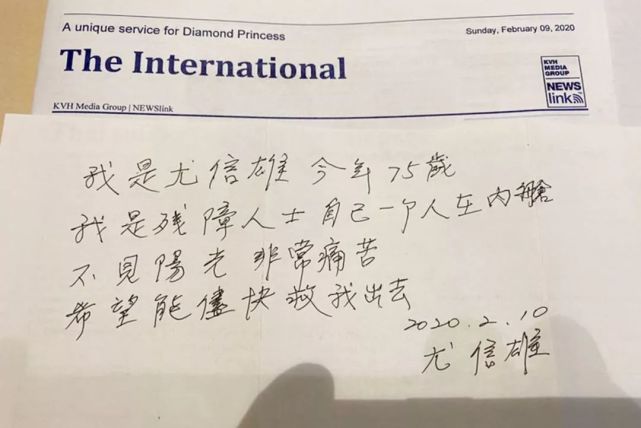 A unique service for Diamond Princess
Sunday, February 09, 2020
The International
KVH
MEDIA
GROUP
NEWS
link
KVH Media Group | NEWSlink
我是尤信雄 今年75歲
我是残障人士 自己一个人在內艙
不見陽光 非常痛苦
希望能儘快救我出去
2020.2.10
尤信雄